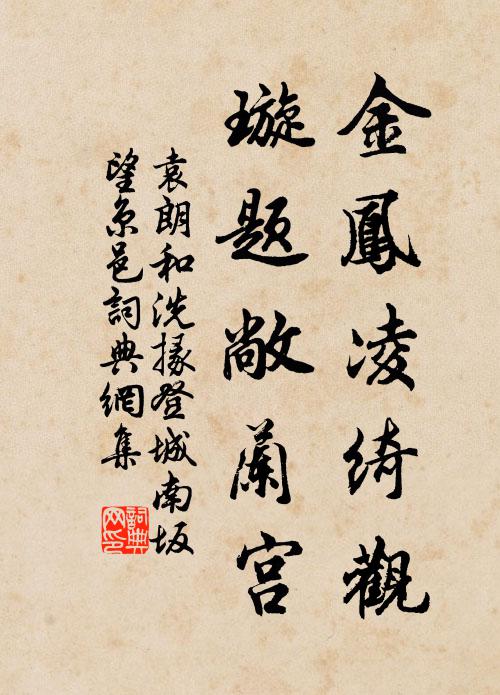 金鳳凌綺觀
璇題敞蘭宮
袁朗和洗掾登城南坂
望京邑詞典網集
詞典
网印